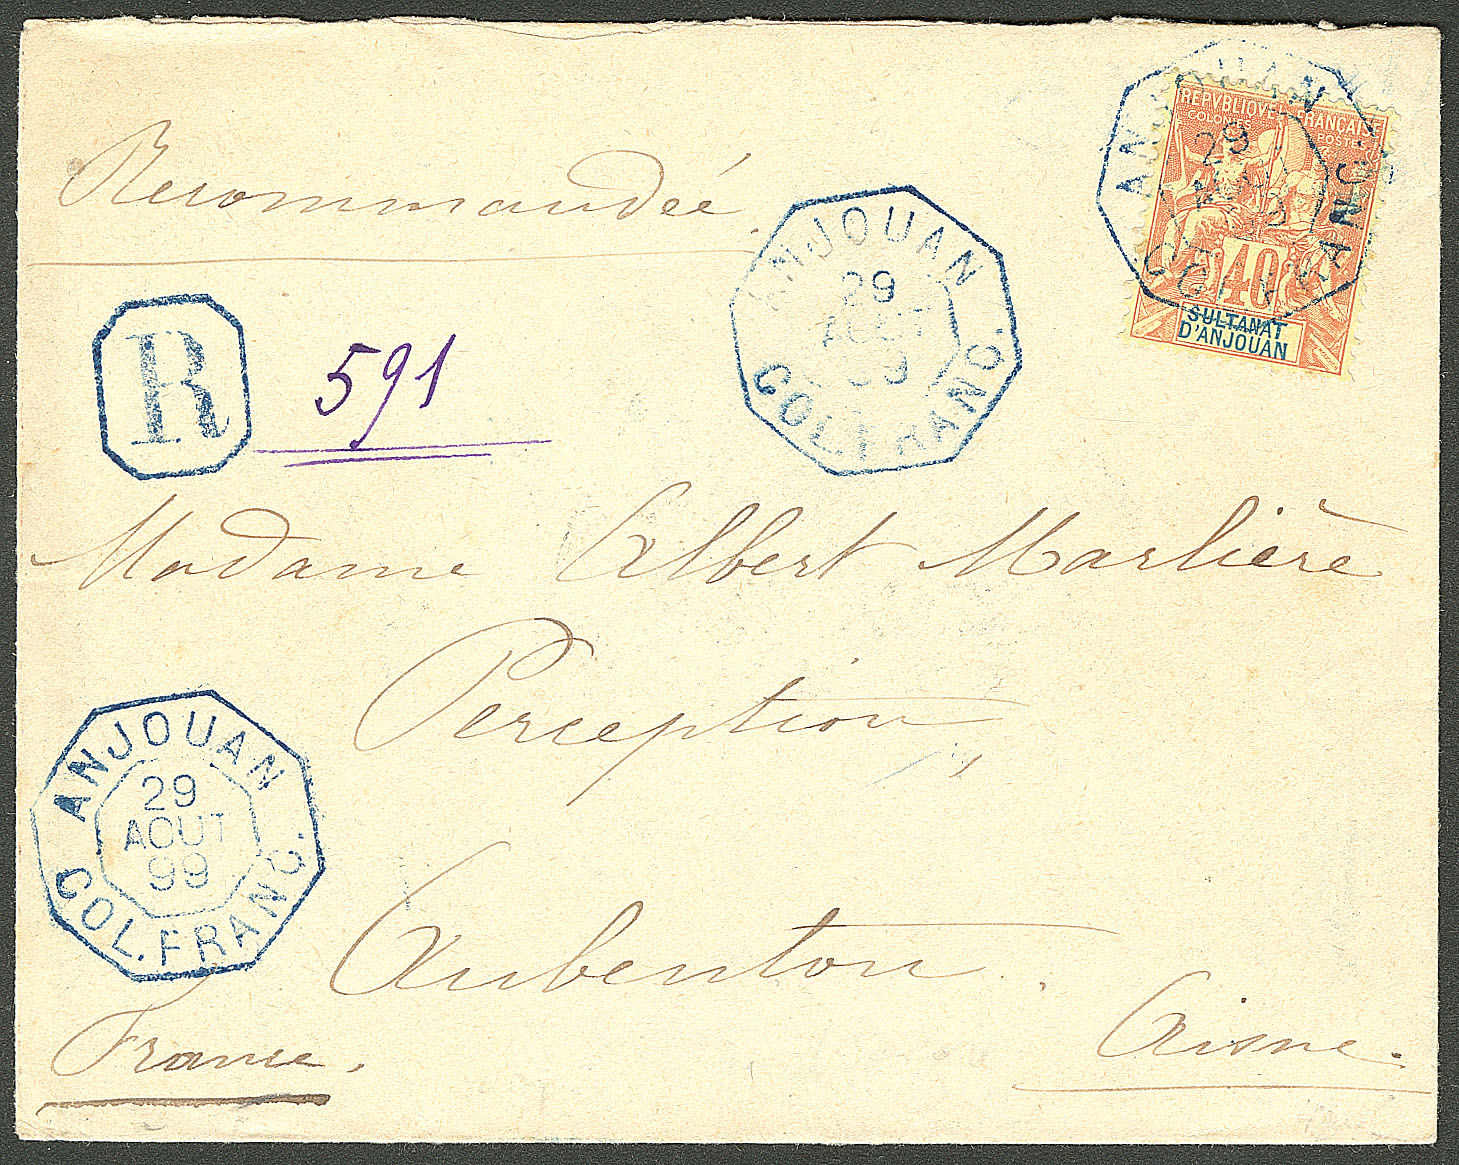 Recommandée
R
591
ANJOUAN
29
AOUT
99
COL. FRANC.
ANJOUAN
29
AOUT
99
COL. FRANC.
REPVBLIQVE FRANÇAISE
COLONIES POSTES
40
SULTANAT
D'ANJOUAN
Madame Albert Marlière
Perception
ANJOUAN
29
AOUT
99
COL. FRANC.
Aubenton.
Aisne.
France.